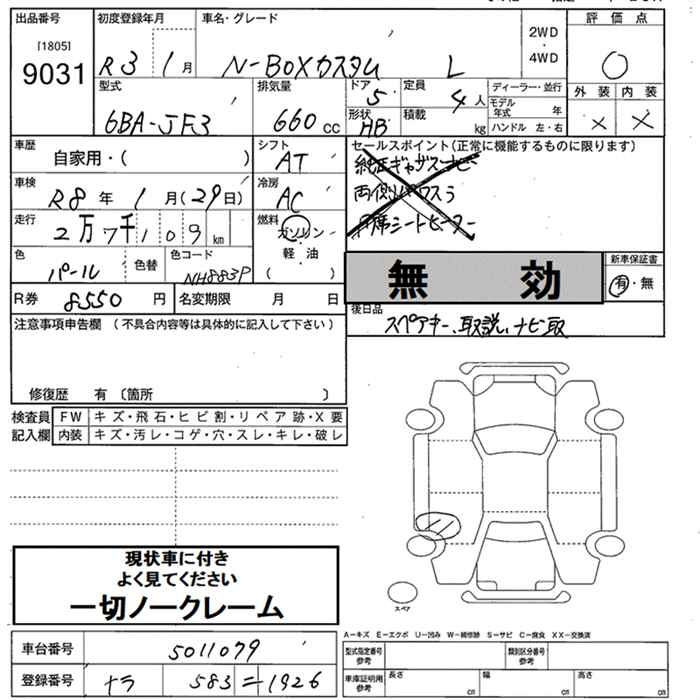 出品番号 初度登録年月 車名・グレード 2WD 評価点
[1805] ・
9031 R3 1月 N-BOXカスタム L 4WD ○
型式 排気量 ドア 5 定員 4人 ディーラー・並行 外装 内装
6BA-JF3 660cc 形状 HB 積載 kg モデル年式 年 × ×
ハンドル 左・右
車歴 自家用・( ) シフト AT セールスポイント(正常に機能するものに限ります)
車検 R8年 1月(29日) 冷房 AC 純正ギャザズナビ
走行 2万7千109km 燃料 ガソリン・軽油 ( ) 両側パワスラ
シートヒーター
色 パール 色替 色コード NH883P 無効 新車保証書
有・無
R券 8550円 名変期限 月 日 後日品
スペアキー、取説、ナビ取
注意事項申告欄(不具合内容等は具体的に記入して下さい)
修復歴 有〔箇所 〕
検査員 FW キズ・飛石・ヒビ割・リペア跡・X要
記入欄 内装 キズ・汚レ・コゲ・穴・スレ・キレ・破レ
現状車に付き
よく見てください
一切ノークレーム
スペア
A-キズ E-エクボ U-凹み W-補修跡 S-サビ C-腐食 XX-交換済
車台番号 5011079 型式指定番号 参考 類別区分番号 参考
登録番号 ナラ 583 = 1926 車庫証明用 参考 長さ cm 幅 cm 高さ cm